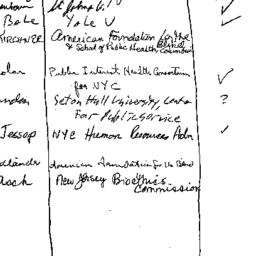 St Johns U.
Bole Yale U
KIRCHNER American Foundation for the Blind
& School of Public Health, Columbia
Public Interest Health Consortium
for NYC
Seton Hall University, Center ?
For Public Service
Jessop NYC Human Resources Adm
American Foundation for the Blind
New Jersey Bioethics
Commission